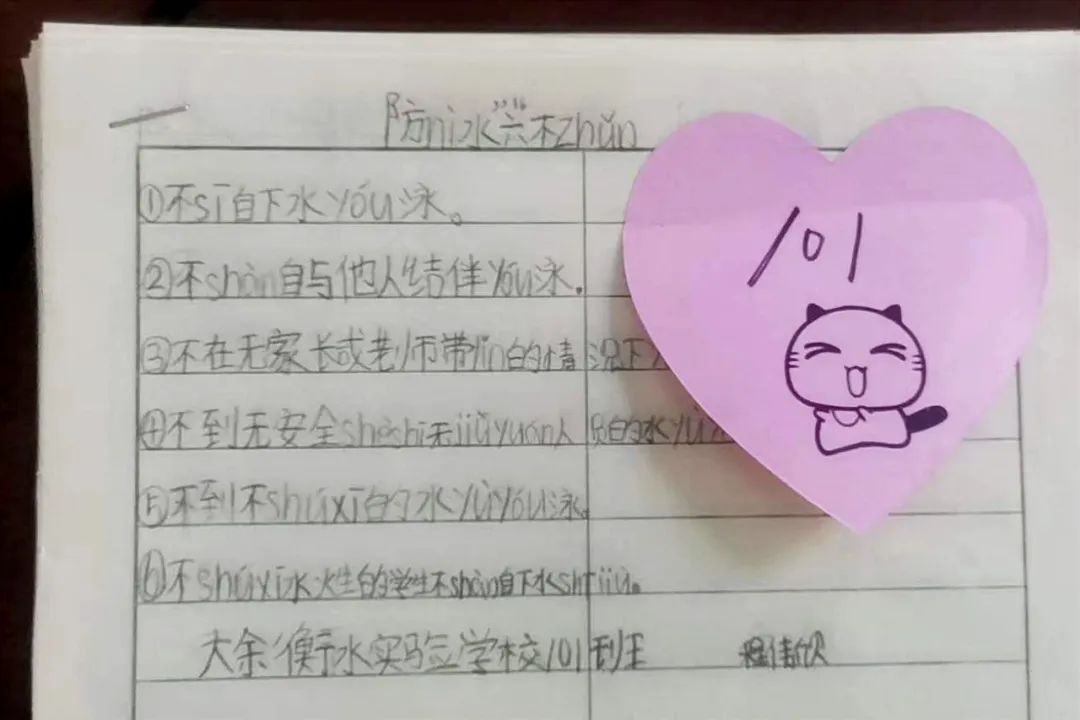 防nì水六不zhǔn
①不sī自下水yóu泳。
②不shàn自与他人结伴yóu泳.
③不在无家长或老师带lǐn的情况下
④不到无安全shèshī无jiùyuán人员的水yù
⑤不到不shúxī的水yùyóu泳.
⑥不shúxī水性的学生不shàn自下水shījiù。
大余衡水实验学校101班
101